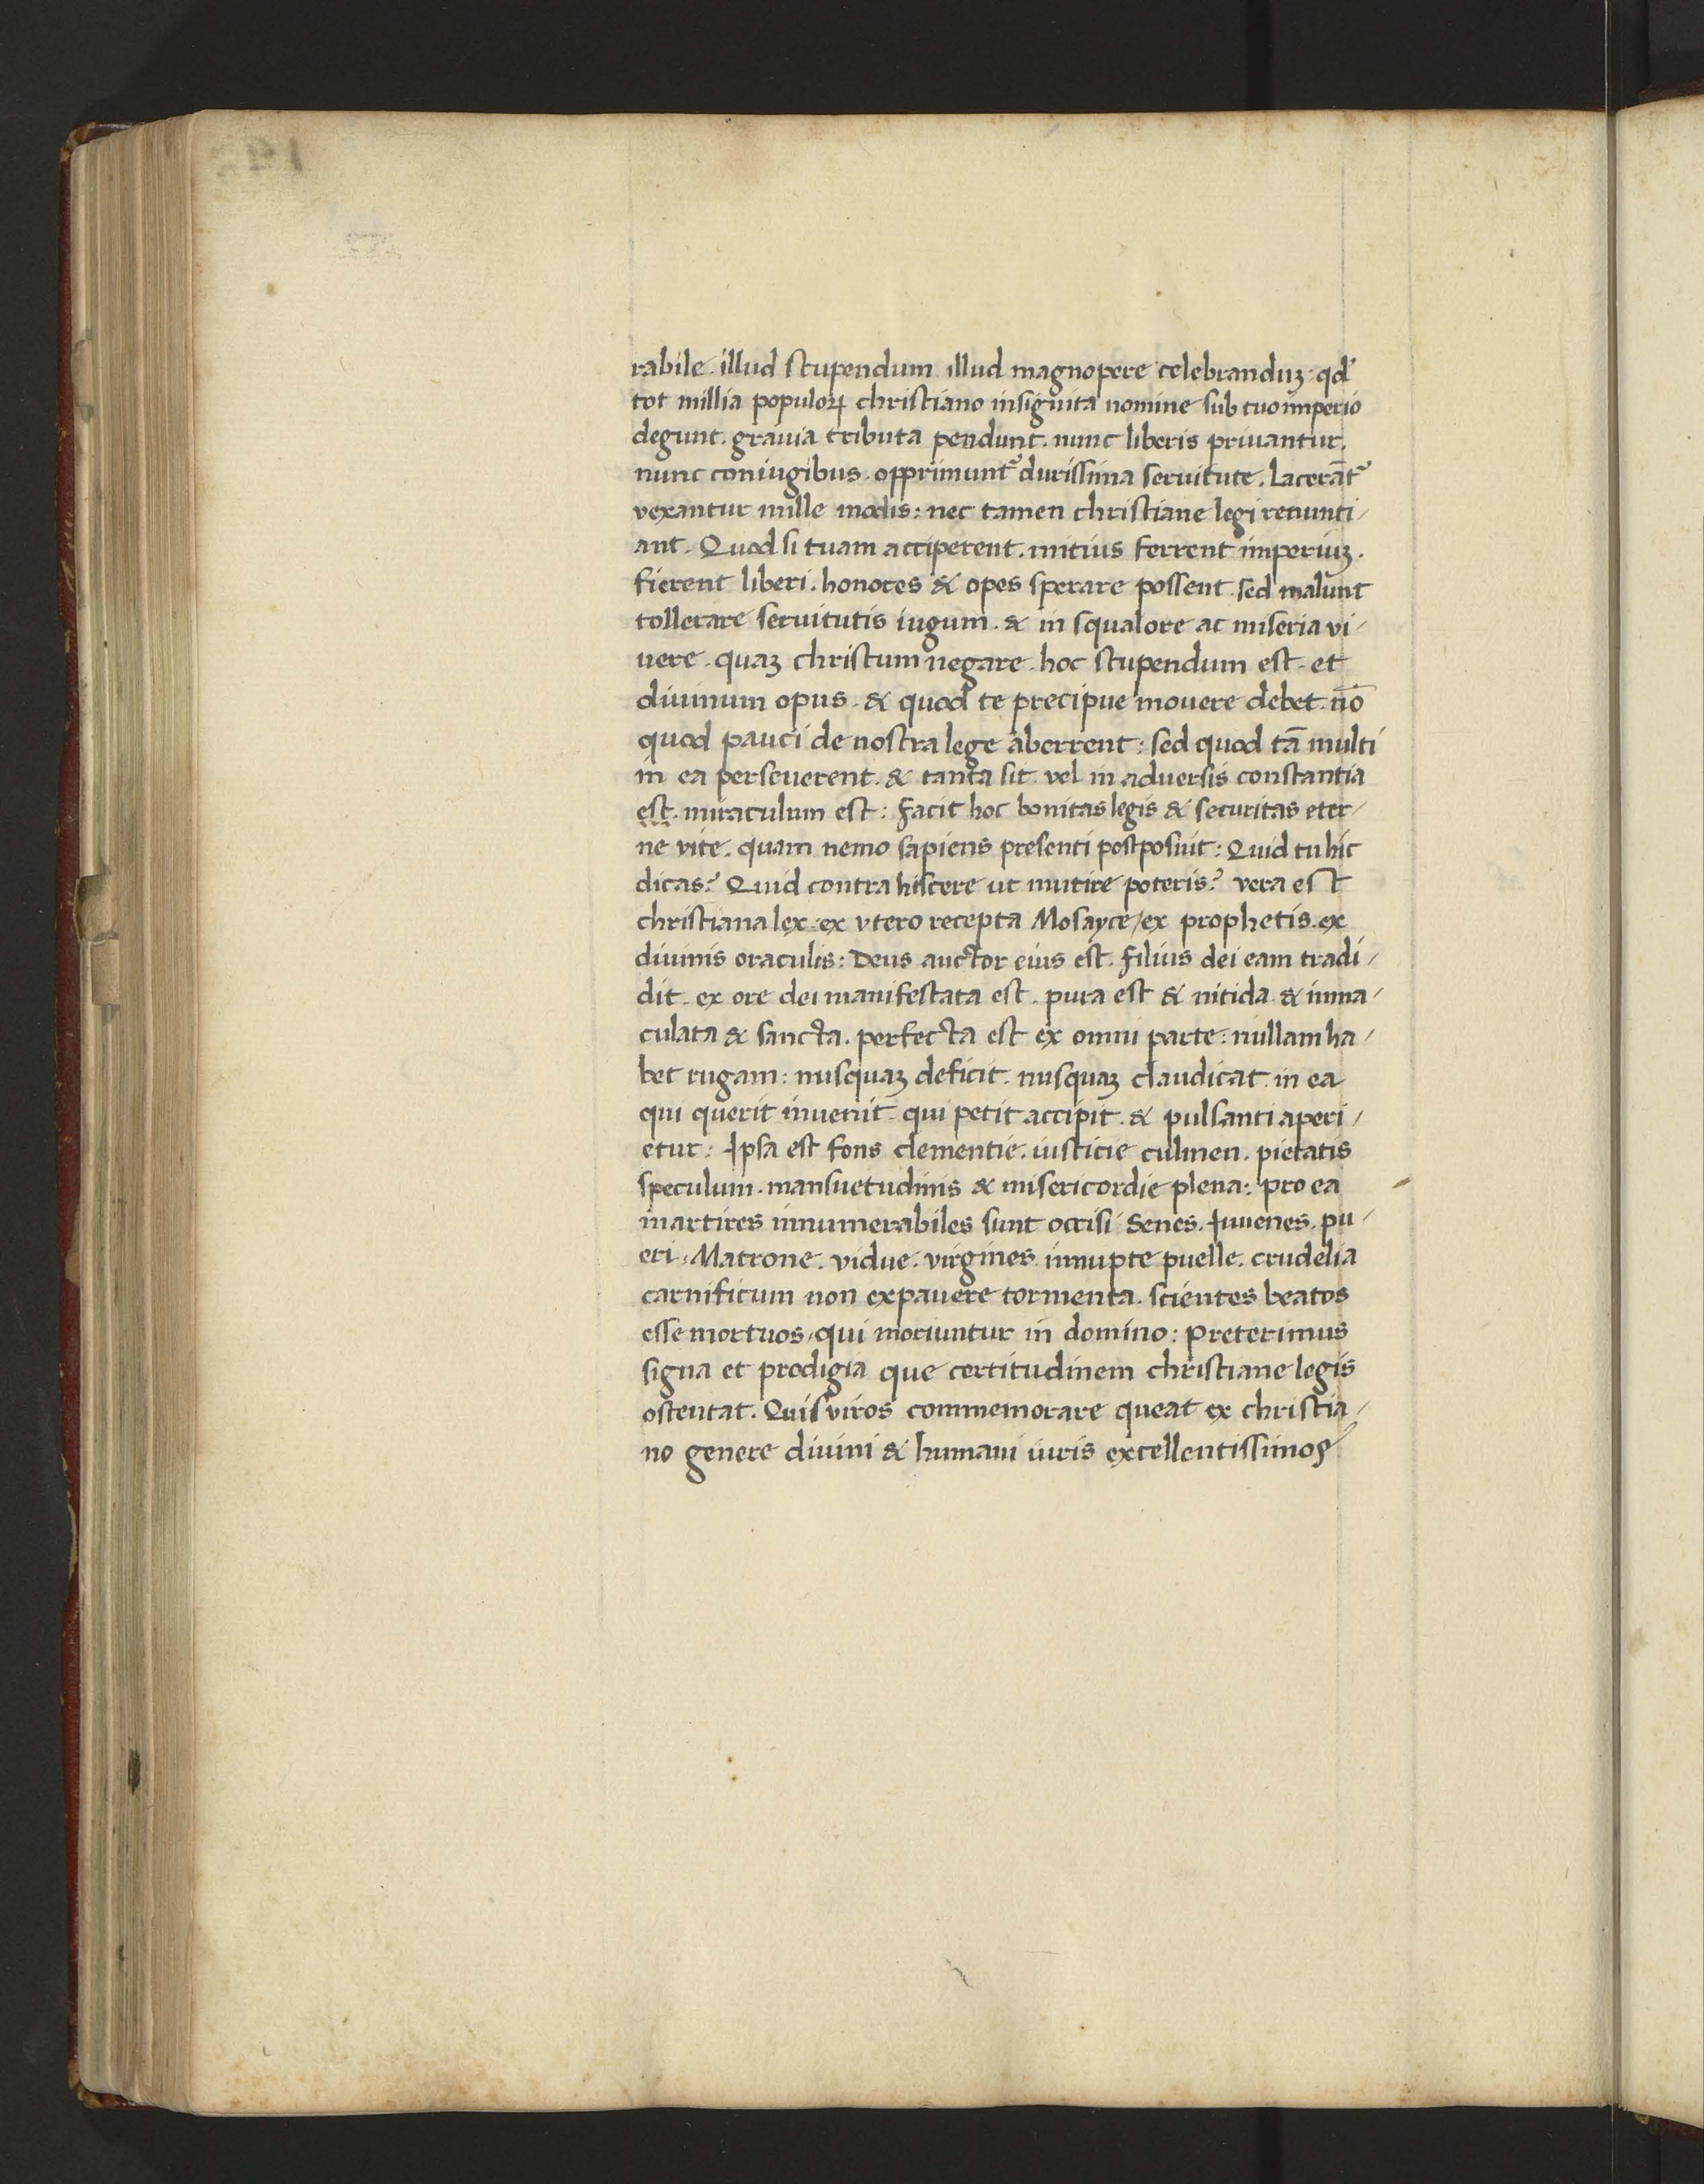 rabile. illud stupendum illud magnopere celebranduꝫ. qd̛
tot millia populoꝝ christiano insignita nomine sub tuo imperio
degunt. grauia tributa pendunt. nunc liberis priuantur.
nunc coniugibus. opprimunt᷑ durissima seruitute. Lacerāt᷑
vexantur mille modis: nec tamen christiane legi renunti/
ant. Quod si tuam acciperent. mitius ferrent imperiuꝫ.
fierent liberi. honores & opes sperare possent. sed malunt
tollerare seruitutis iugum. & in squalore ac miseria vi/
uere. quaꝫ christum negare. hoc stupendum est. et
diuinum opus. & quod te precipue mouere debet. nō
quod pauci de nostra lege aberrent: sed quod tā multi
in ea perseuerent. & tanta sit vel in aduersis constantia
est. miraculum est: facit hoc bonitas legis & securitas eter/
ne vite. quam nemo sapiens presenti postposuit: Quid tu hic
dicas? Quid contra hiscere ut mutire poteris? vera est
christiana lex. ex vtero recepta Mosayce/ex prophetis. ex
diuinis oraculis: Deus auctor eius est. filius dei eam tradi/
dit. ex ore dei manifestata est. pura est & nitida & inma/
culata & sancta. perfecta est ex omni parte: nullam ha/
bet rugam: nusquaꝫ deficit. nusquaꝫ claudicat. in ea
qui querit inuenit. qui petit accipit. & pulsanti aperi/
etur: Ipsa est fons clementie. iusticie culmen. pietatis
speculum. mansuetudinis & misericordie plena: pro ea
martires innumerabiles sunt occisi. Senes. Iuuenes. pu/
eri. Matrone. vidue. virgines. innupte puelle. crudelia
carnificum non expauere tormenta. scientes beatos
esse mortuos/qui moriuntur in domino: Preterimus
signa et prodigia que certitudinem christiane legis
ostentat. Quis viros commemorare queat ex christia/
no genere diuini & humani iuris excellentissimos